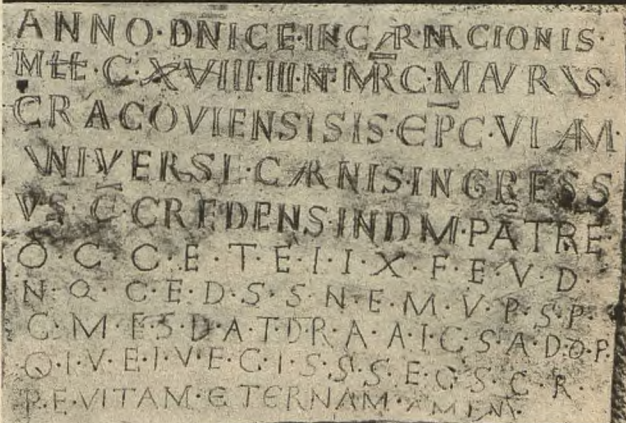 ANNO·DNICE·INCARNACIONIS·
MILL·C·XVIIII·IIII·N·MRC·MAVRVS·
CRACOVIENSISIS·EPC·VIAM·
VNIVERSE·CARNIS·INGRESS
VS·E·CREDENS·INDM·PATRE·
O·C·C·E·T·E·I·I·X·F·E·V·D
N·Q·C·E·D·S·S·N·E·M·V·P·S·P·
C·M·E·S·D·A·T·D·R·A·A·I·C·S·A·D·O·P·
Q·I·V·E·I·V·E·C·I·S·S·S·E·C·S·C·R·
R·E·VITAM·ETERNAM·AMEN·